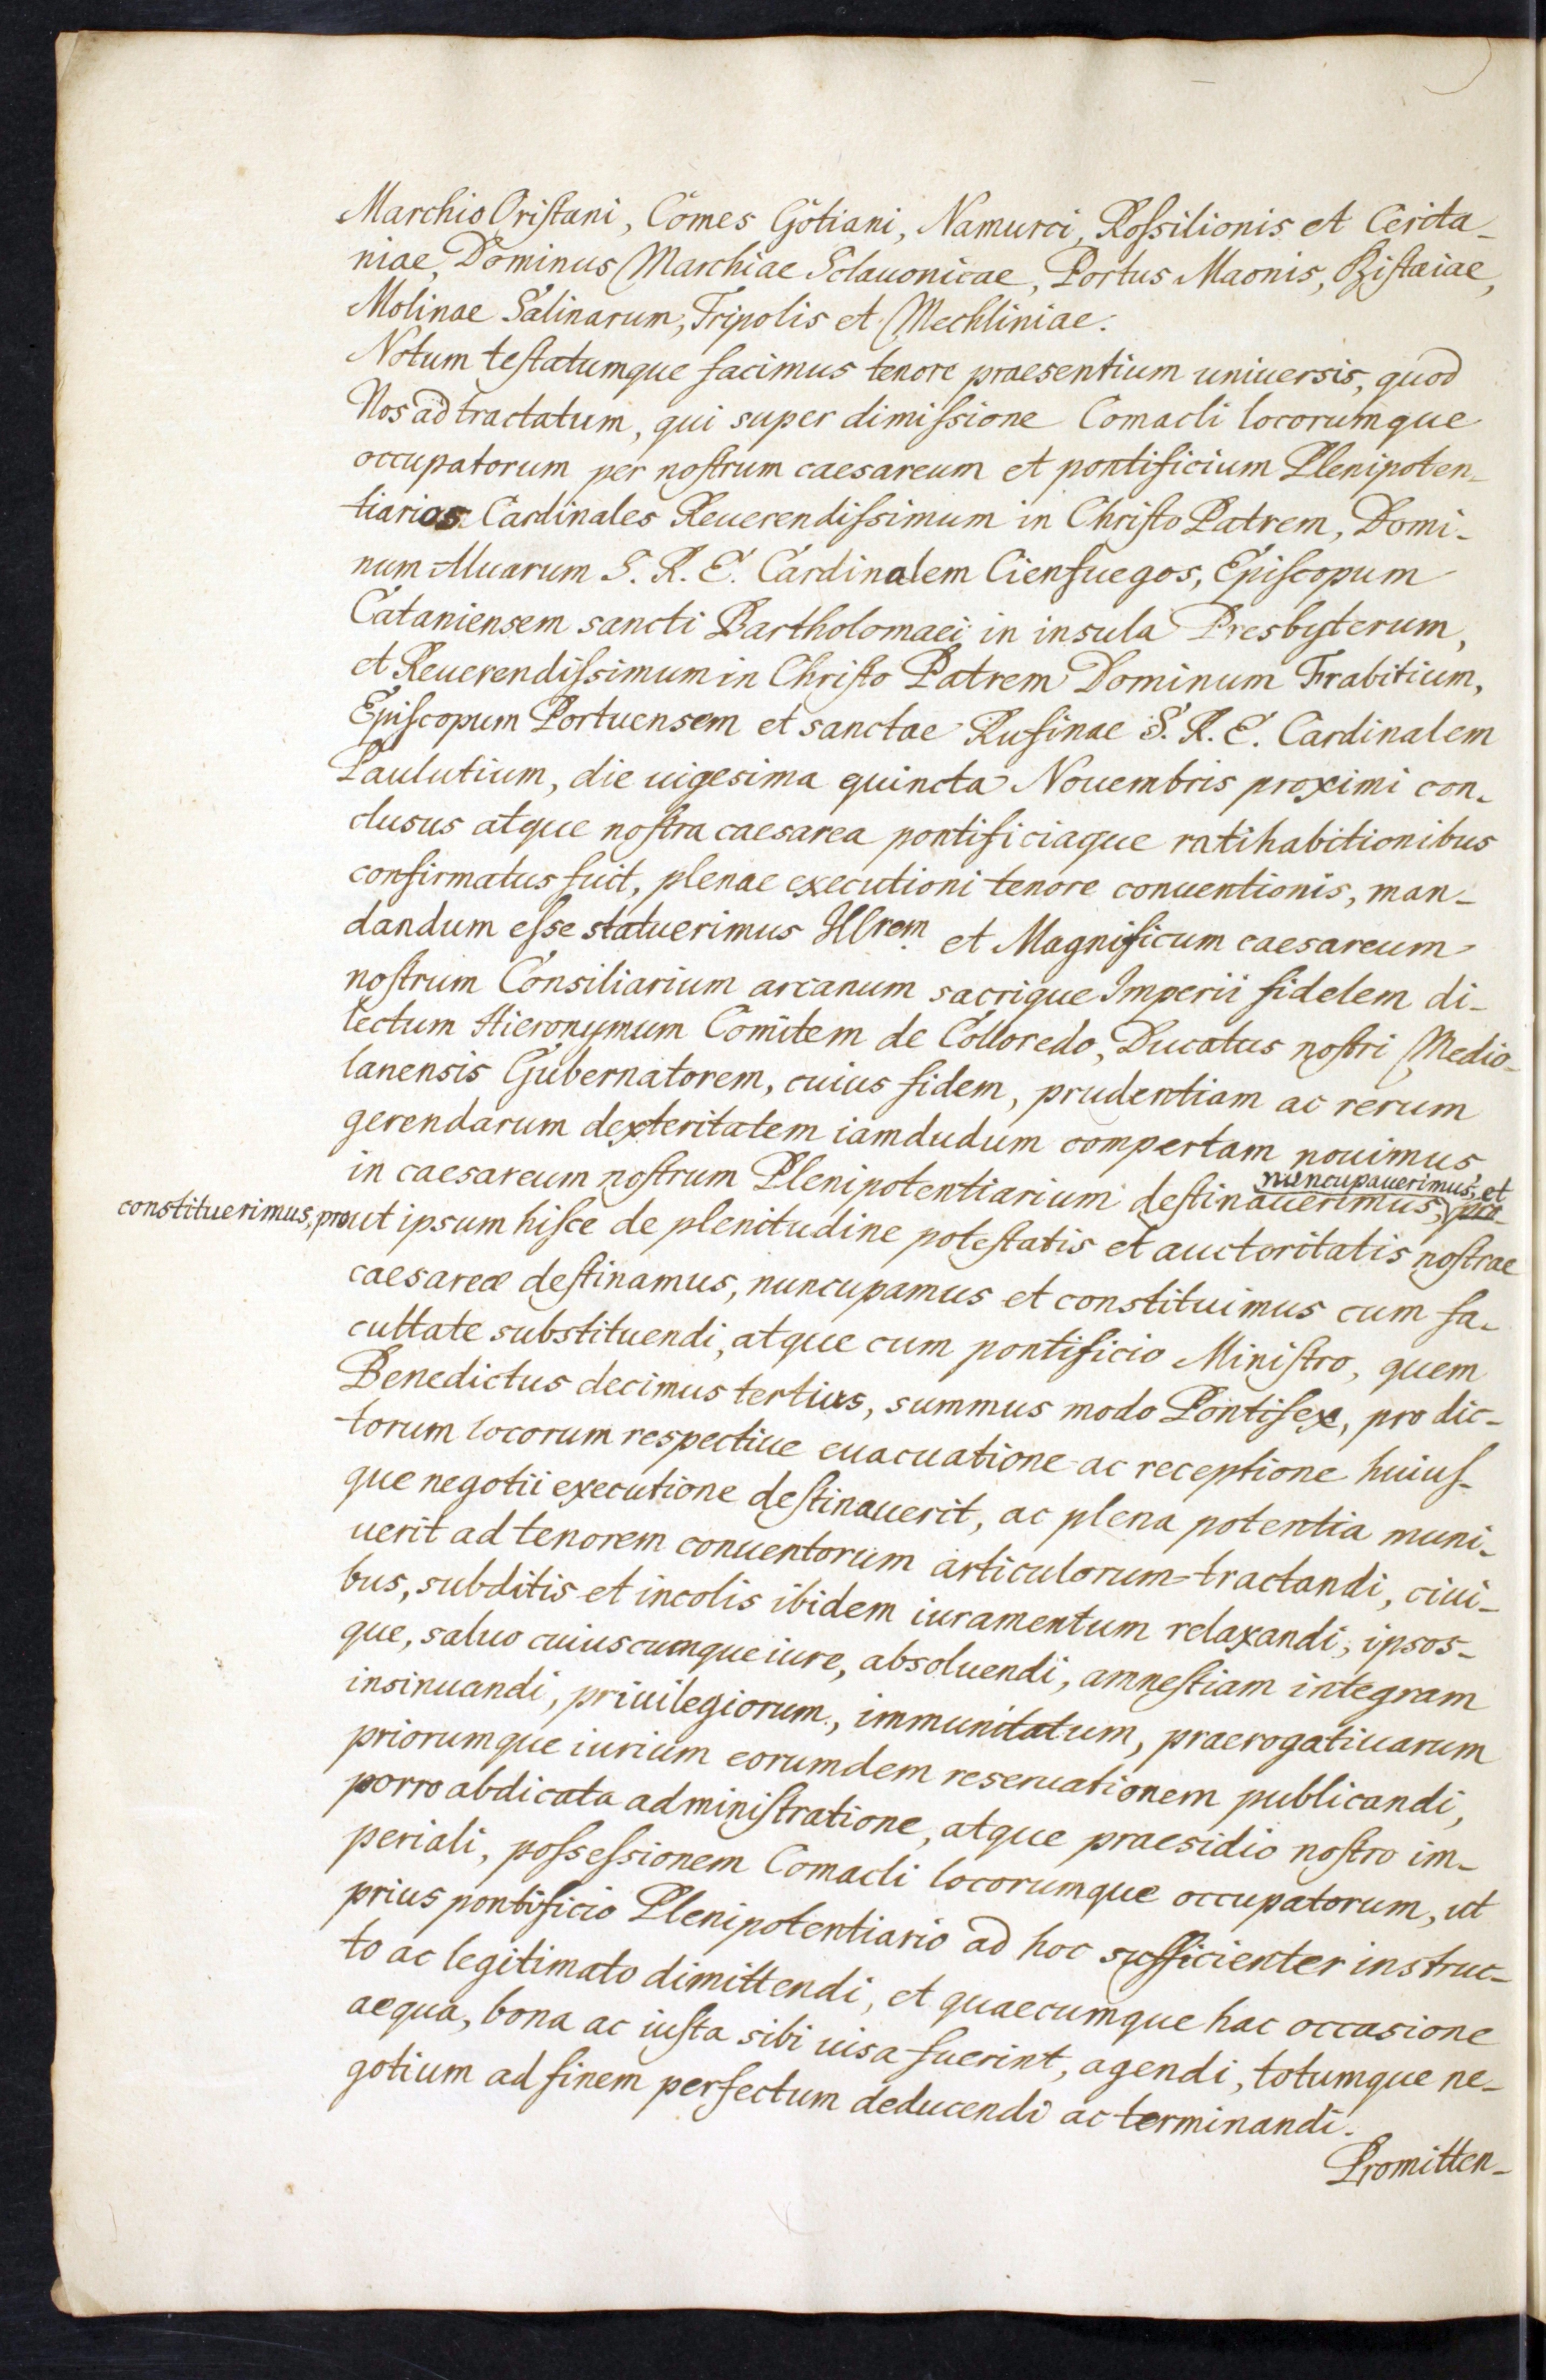 Marchio Oristani, Comes Gotiani, Namurci, Rossilionis et Cerita-
niae, Dominus Marchiae Sclauonicae, Portus Maonis, Biscaiae,
Molinae Salinarum, Tripolis et Mechliniae.
Notum testatumque facimus tenore praesentium uniuersis, quod
Nos ad tractatum, qui super dimissione Comacli locorumque
occupatorum per nostrum caesareum et pontificium Plenipoten-
tiarios Cardinales Reuerendissimum in Christo Patrem, Domi-
num Aluarum S. R. E. Cardinalem Cienfuegos, Episcopum
Cataniensem sancti Bartholomaei in insula Presbyterum,
et Reuerendissimum in Christo Patrem Dominum Frabitium,
Episcopum Portuensem et sanctae Rufinae S. R. E. Cardinalem
Paulutium, die uigesima quincta Nouembris proximi con-
clusus atque nostra caesarea pontificiaque ratihabitionibus
confirmatus fuit, plenae executioni tenore conuentionis, man-
dandum esse statuerimus Illrem et Magnificum caesareum
nostrum Consiliarium arcanum sacrique Imperii fidelem di-
lectum Hieronymum Comitem de Colloredo, Ducatus nostri Medio-
lanensis Gubernatorem, cuius fidem, prudentiam ac rerum
gerendarum dexteritatem iamdudum compertam nouimus
in caesareum nostrum Plenipotentiarium destinauerimus, nuncupauerimus, et
constituerimus, prout ipsum hisce de plenitudine potestatis et auctoritatis nostrae
caesareae destinamus, nuncupamus et constituimus cum fa-
cultate substituendi, atque cum pontificio Ministro, quem
Benedictus decimus tertius, summus modo Pontifex, pro dic-
torum locorum respectiue euacuatione ac receptione huius-
que negotii executione destinauerit, ac plena potentia muni-
uerit ad tenorem conuentorum articulorum tractandi, ciui-
bus, subditis et incolis ibidem iuramentum relaxandi, ipsos-
que, saluo cuiuscumque iure, absoluendi, amnestiam integram
insinuandi, priuilegiorum, immunitatum, praerogatiuarum
priorumque iurium eorumdem reseruationem publicandi,
porro abdicata administratione, atque praesidio nostro im-
periali, possessionem Comacli locorumque occupatorum, ut
prius pontificio Plenipotentiario ad hoc sufficienter instruc-
to ac legitimato dimittendi, et quaecumque hac occasione
aequa, bona ac iusta sibi uisa fuerint, agendi, totumque ne-
gotium ad finem perfectum deducendi ac terminandi.
Promitten-